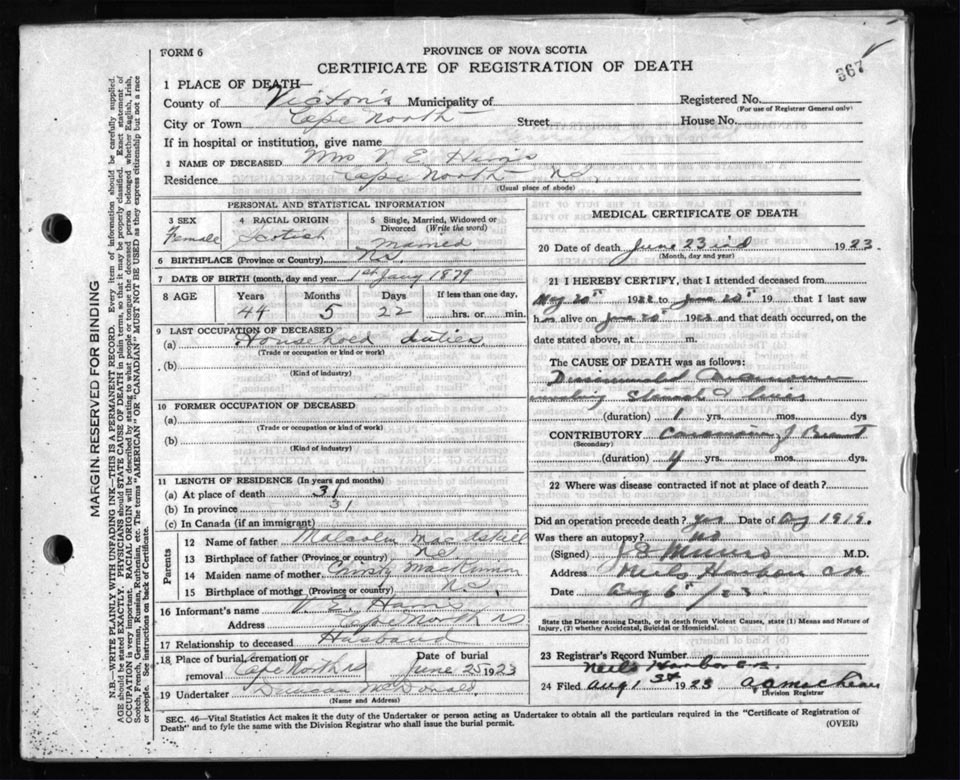 FORM 6
PROVINCE OF NOVA SCOTIA
CERTIFICATE OF REGISTRATION OF DEATH
367
1 PLACE OF DEATH—
County of Victoria Municipality of
Registered No.
(For use of Registrar General only)
City or Town Cape North Street House No.
If in hospital or institution, give name
2 NAME OF DECEASED Mrs V. E.
Residence Cape North NS.
(Usual place of abode)
PERSONAL AND STATISTICAL INFORMATION
3 SEX Female
4 RACIAL ORIGIN Scotish
5 Single, Married, Widowed or Divorced (Write the word) Married
6 BIRTHPLACE (Province or Country) NS
7 DATE OF BIRTH (month, day and year) 1st Jany 1879
8 AGE Years 44 Months 5 Days 22 If less than one day, hrs. or min.
9 LAST OCCUPATION OF DECEASED
(a) Household duties
(Trade or occupation or kind or work)
(b)
(Kind of industry)
10 FORMER OCCUPATION OF DECEASED
(a)
(Trade or occupation or kind of work)
(b)
(Kind of industry)
11 LENGTH OF RESIDENCE (In years and months)
(a) At place of death 31
(b) In province 31
(c) In Canada (if an immigrant)
Parents
12 Name of father Malcolm MacAskill
13 Birthplace of father (Province or country) NS
14 Maiden name of mother Cirsty MacKinnon
15 Birthplace of mother (Province or country) N.S.
16 Informant's name V. E.
Address Cape North NS
17 Relationship to deceased Husband
18 Place of burial, cremation or removal Cape North NS Date of burial June 25 1923
19 Undertaker Duncan McDonald
(Name and Address)
MEDICAL CERTIFICATE OF DEATH
20 Date of death June 23 1923.
(Month, day and year)
21 I HEREBY CERTIFY, that I attended deceased from
May 20th 192 to June 20th 19 that I last saw
h alive on June 20th 1923 and that death occurred, on the
date stated above, at m.
The CAUSE OF DEATH was as follows:
Disseminated Carcinoma
involving Stomach & liver
(duration) 1 yrs. mos. dys
CONTRIBUTORY Carcinoma of Breast
(Secondary)
(duration) 4 yrs. mos. dys.
22 Where was disease contracted if not at place of death?
Did an operation precede death? yes Date of Aug 1919.
Was there an autopsy? no
(Signed) Munro M.D.
Address Neils Harbour CB
Date Aug 6th /23
State the Disease causing Death, or in death from Violent Causes, state (1) Means and Nature of Injury, (2) whether Accidental, Suicidal or Homicidal.
23 Registrar's Record Number
Neils Harbor C.B.
24 Filed Aug 1st 1923
Division Registrar
SEC. 46—Vital Statistics Act makes it the duty of the Undertaker or person acting as Undertaker to obtain all the particulars required in the "Certificate of Registration of
Death" and to fyle the same with the Division Registrar who shall issue the burial permit. (OVER)
MARGIN RESERVED FOR BINDING
N.B.—WRITE PLAINLY WITH UNFADING INK—THIS IS A PERMANENT RECORD. Every item of information should be carefully supplied.
AGE should be stated EXACTLY. PHYSICIANS should STATE CAUSE OF DEATH in plain terms, so that it may be properly classified. Exact statement of
OCCUPATION is very important. RACIAL ORIGIN will be described by stating to what people or tongue the deceased person belonged whether English, Irish,
Scotch, French, German, Russian, Ruthenian, etc. The terms "AMERICAN" OR "CANADIAN" MUST NOT BE USED as they express citizenship but not a race
or people. See instructions on back of Certificate.